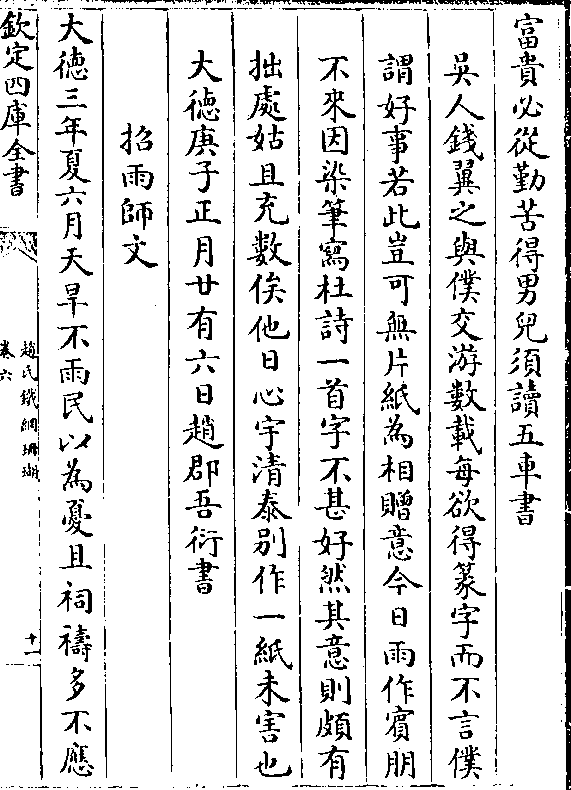 富貴必從勤苦得男兒須讀五車書
吳人錢翼之與僕交游數載每欲得篆字而不言僕
謂好事若此豈可無片紙為相贈意今日雨作賓朋
不來因染筆寫杜詩一首字不甚好然其意則頗有
拙處姑且充數俟他日心宇清泰別作一紙未害也
大德庚子正月廿有六日趙郡吾衍書
招雨師文
大德三年夏六月天旱不雨民以為憂且祠禱多不應
欽定四庫全書
趙氏鐵網珊瑚
卷六
十一